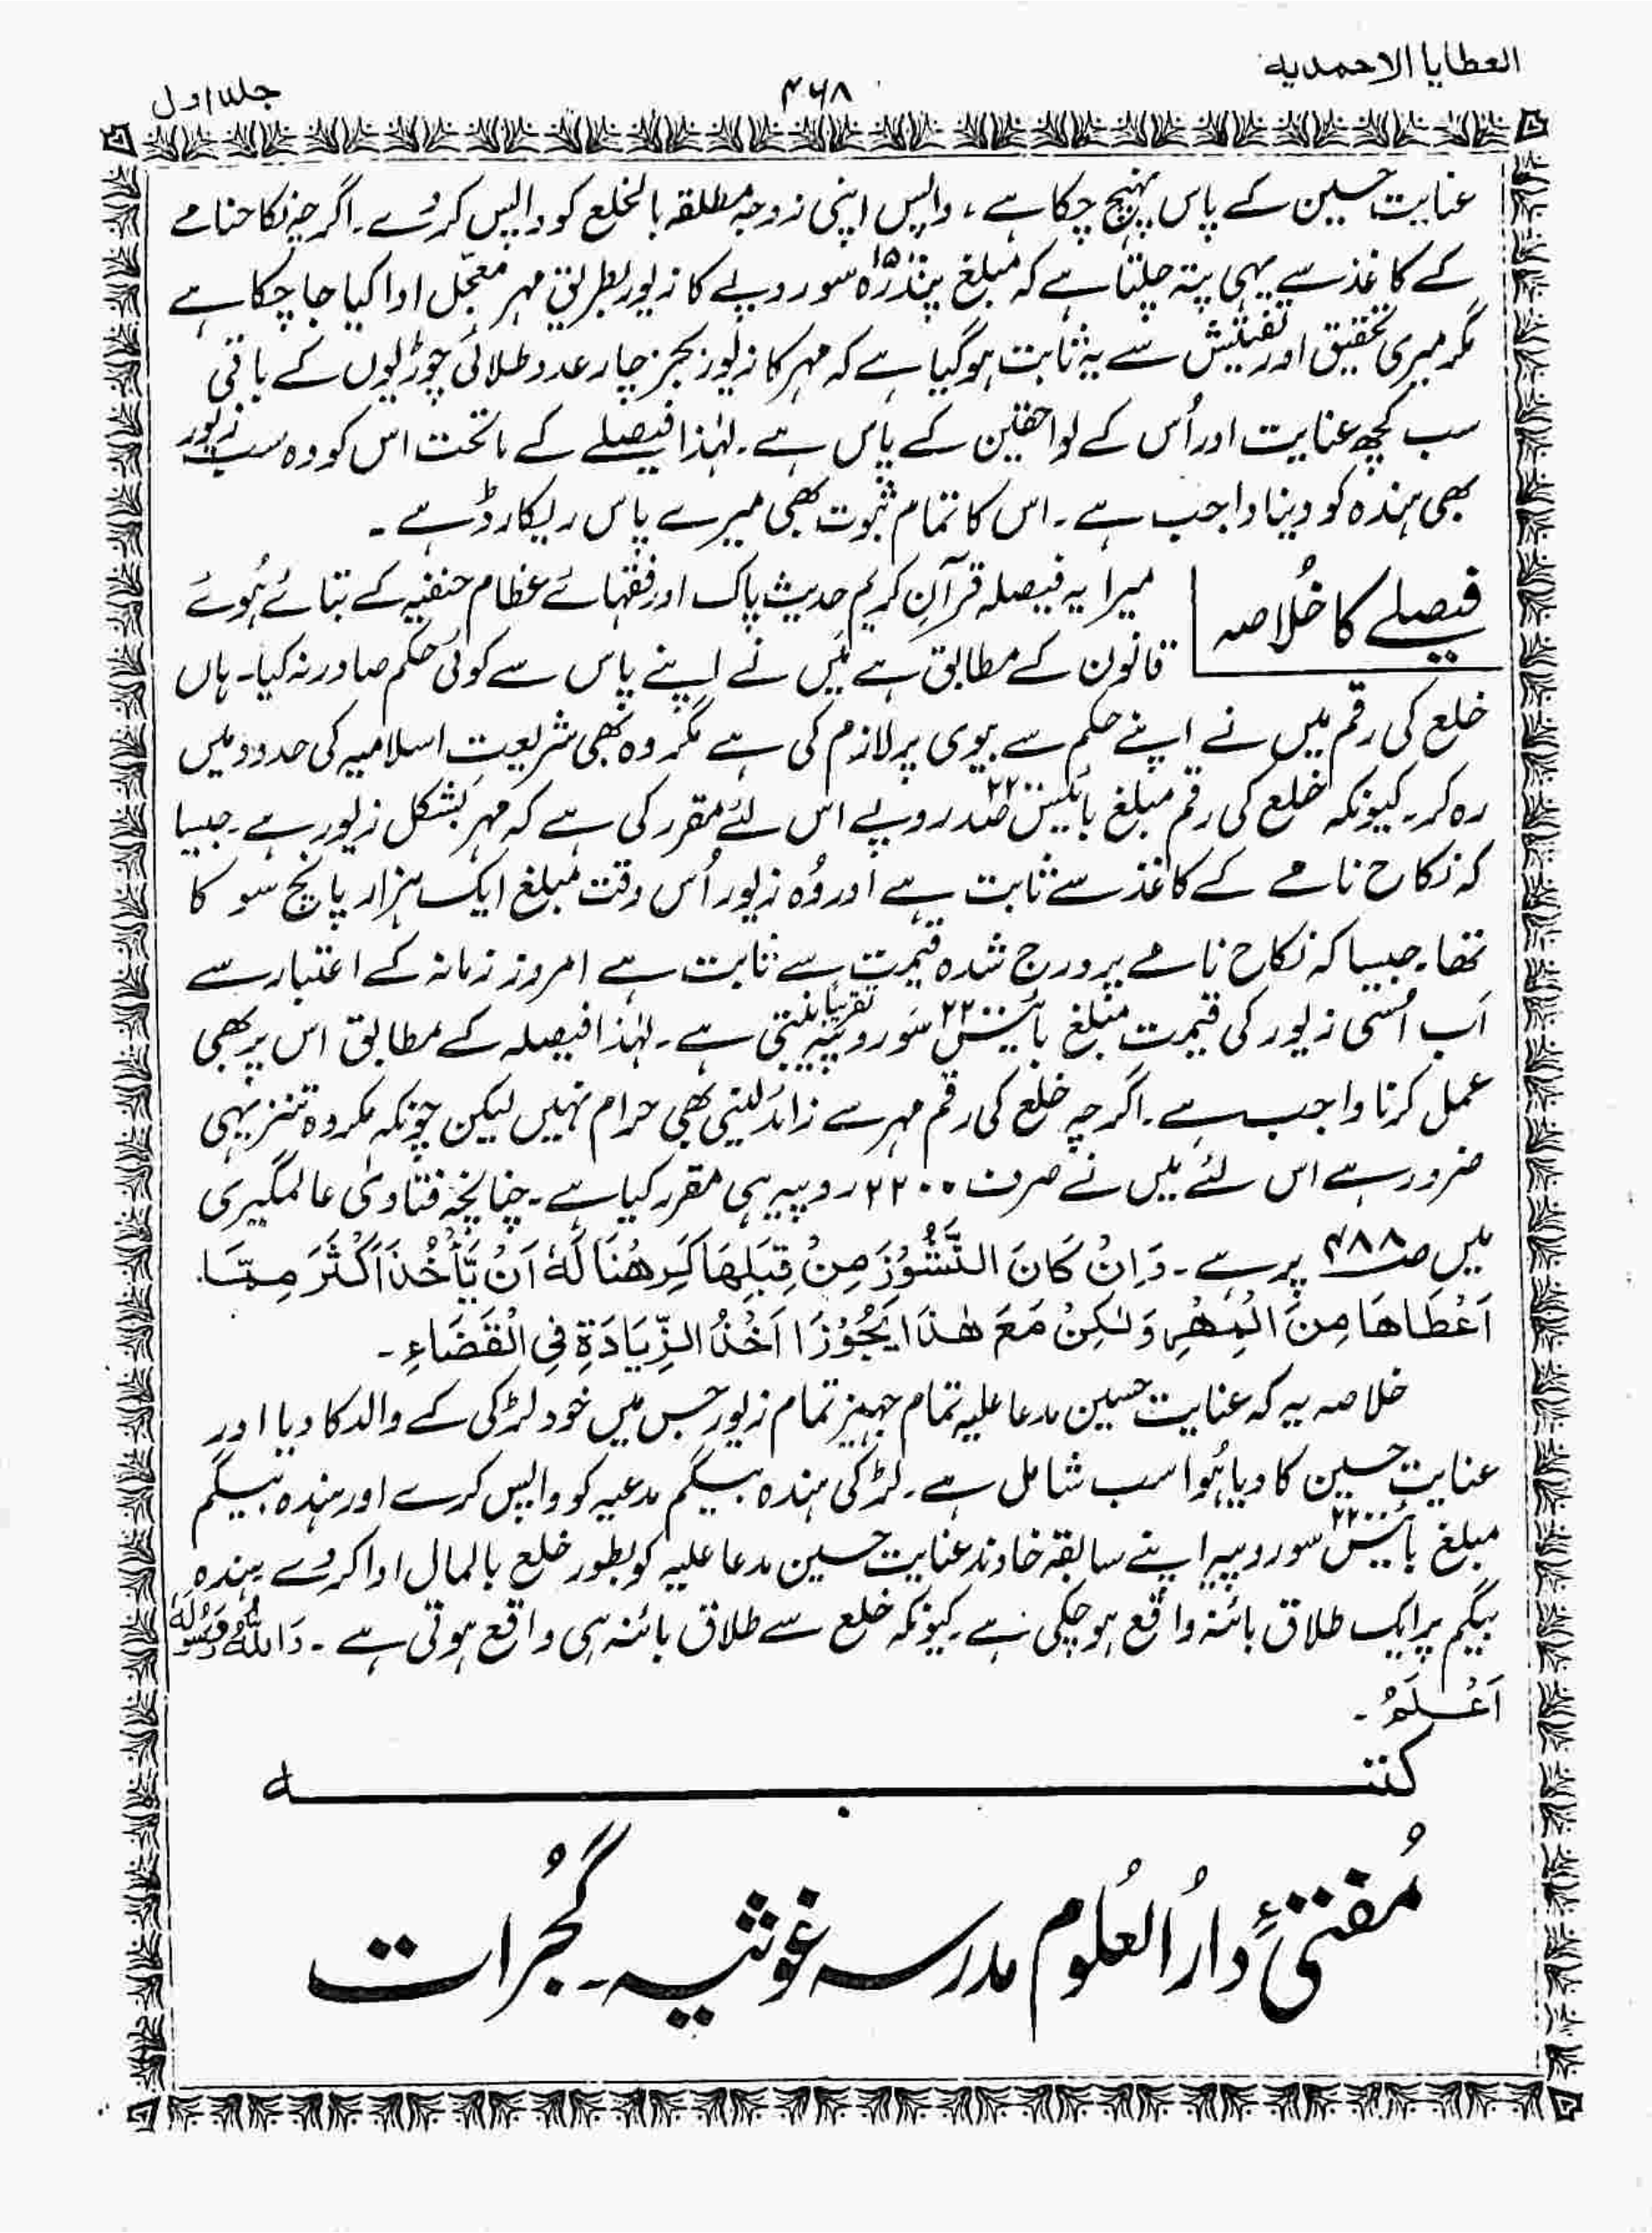 العطایا الاحمدیه
۴۶۸
جلد اول
عنایت حسین کے پاس پہنچ چکا ہے، واپس اپنی زوجہ مطلقہ بالخلع کو واپس کر دے۔ اگرچہ نکاحنامے
کے کاغذ سے یہی پتہ چلتا ہے کہ مبلغ پندرہ ۱۵۰۰ سو روپے کا زیور بطریق مہر معجّل ادا کیا جا چکا ہے
مگر میری تحقیق اور تفتیش سے یہ ثابت ہو گیا ہے کہ مہر کا زیور بجز چار عدد طلائی چوڑیوں کے باقی
سب کچھ عنایت اور اُس کے لواحقین کے پاس ہے۔ لہٰذا فیصلے کے ماتحت اس کو وہ سب زیور
بھی ہندہ کو دینا واجب ہے۔ اس کا تمام ثبوت بھی میرے پاس ریکارڈ ہے۔
فیصلے کا خُلاصہ
میرا یہ فیصلہ قرآنِ کریم حدیث پاک اور فقہائے عظام حنفیہ کے بتائے ہُوئے
قانون کے مطابق ہے میں نے اپنے پاس سے کوئی حکم صادر نہ کیا۔ ہاں
خلع کی رقم میں نے اپنے حکم سے بیوی پر لازم کی ہے مگر وہ بھی شریعتِ اسلامیہ کی حدود میں
رہ کر۔ کیونکہ خلع کی رقم مبلغ بائیس ۲۲۰۰ صد روپے اس لئے مقرر کی ہے کہ مہر بشکل زیور ہے۔ جیسا
کہ نکاح نامے کے کاغذ سے ثابت ہے اور وُہ زیور اُس وقت مبلغ ایک ہزار پانچ سو کا
تھا۔ جیسا کہ نکاح نامے پر درج شدہ قیمت سے ثابت ہے امروز زمانہ کے اعتبار سے
اَب اُسی زیور کی قیمت مبلغ بائیس ۲۲۰۰ سَو روپیہ تقریباً بنتی ہے۔ لہٰذا فیصلہ کے مطابق اس پر بھی
عمل کرنا واجب ہے۔ اگرچہ خلع کی رقم مہر سے زائد لینی بھی حرام نہیں لیکن چونکہ مکروہ تنزیہی
ضرور ہے اس لئے میں نے صرف ۲۲۰۰ روپیہ ہی مقرر کیا ہے۔ چنانچہ فتاویٰ عالمگیری
میں صـ ۴۸۸ پر ہے۔ وَاِنْ كَانَ النُّشُوْزَ مِنْ قِبَلِهَا كَرِهْنَا لَهٗ اَنْ يَّأْخُذَ اَكْثَرَ مِمَّا
اَعْطَاهَا مِنَ الْمَهْرِ وَلٰكِنْ مَعَ هٰذَا يَجُوْزَا اَخْذُ الزِّيَادَةِ فِي الْقَضَاءِ۔
خلاصہ یہ کہ عنایت حسین مدعا علیہ تمام جہیز تمام زیور جس میں خود لڑکی کے والد کا دیا اور
عنایت حسین کا دیا ہُوا سب شامل ہے۔ لڑکی ہندہ بیگم مدعیہ کو واپس کرے اور ہندہ بیگم
مبلغ بائیس ۲۲۰۰ سو روپیہ اپنے سابقہ خاوند عنایت حسین مدعا علیہ کو بطور خلع بالمال ادا کر دے ہندہ
بیگم پر ایک طلاق بائنہ واقع ہو چکی ہے۔ کیونکہ خلع سے طلاق بائنہ ہی واقع ہوتی ہے۔ وَاللّٰهُ وَرَسُوْلُهٗ
اَعْلَمُ۔
کتبـــــــه
مُفتیٔ دارُ العُلوم مدرسہ غوثیہ۔ گُجرات